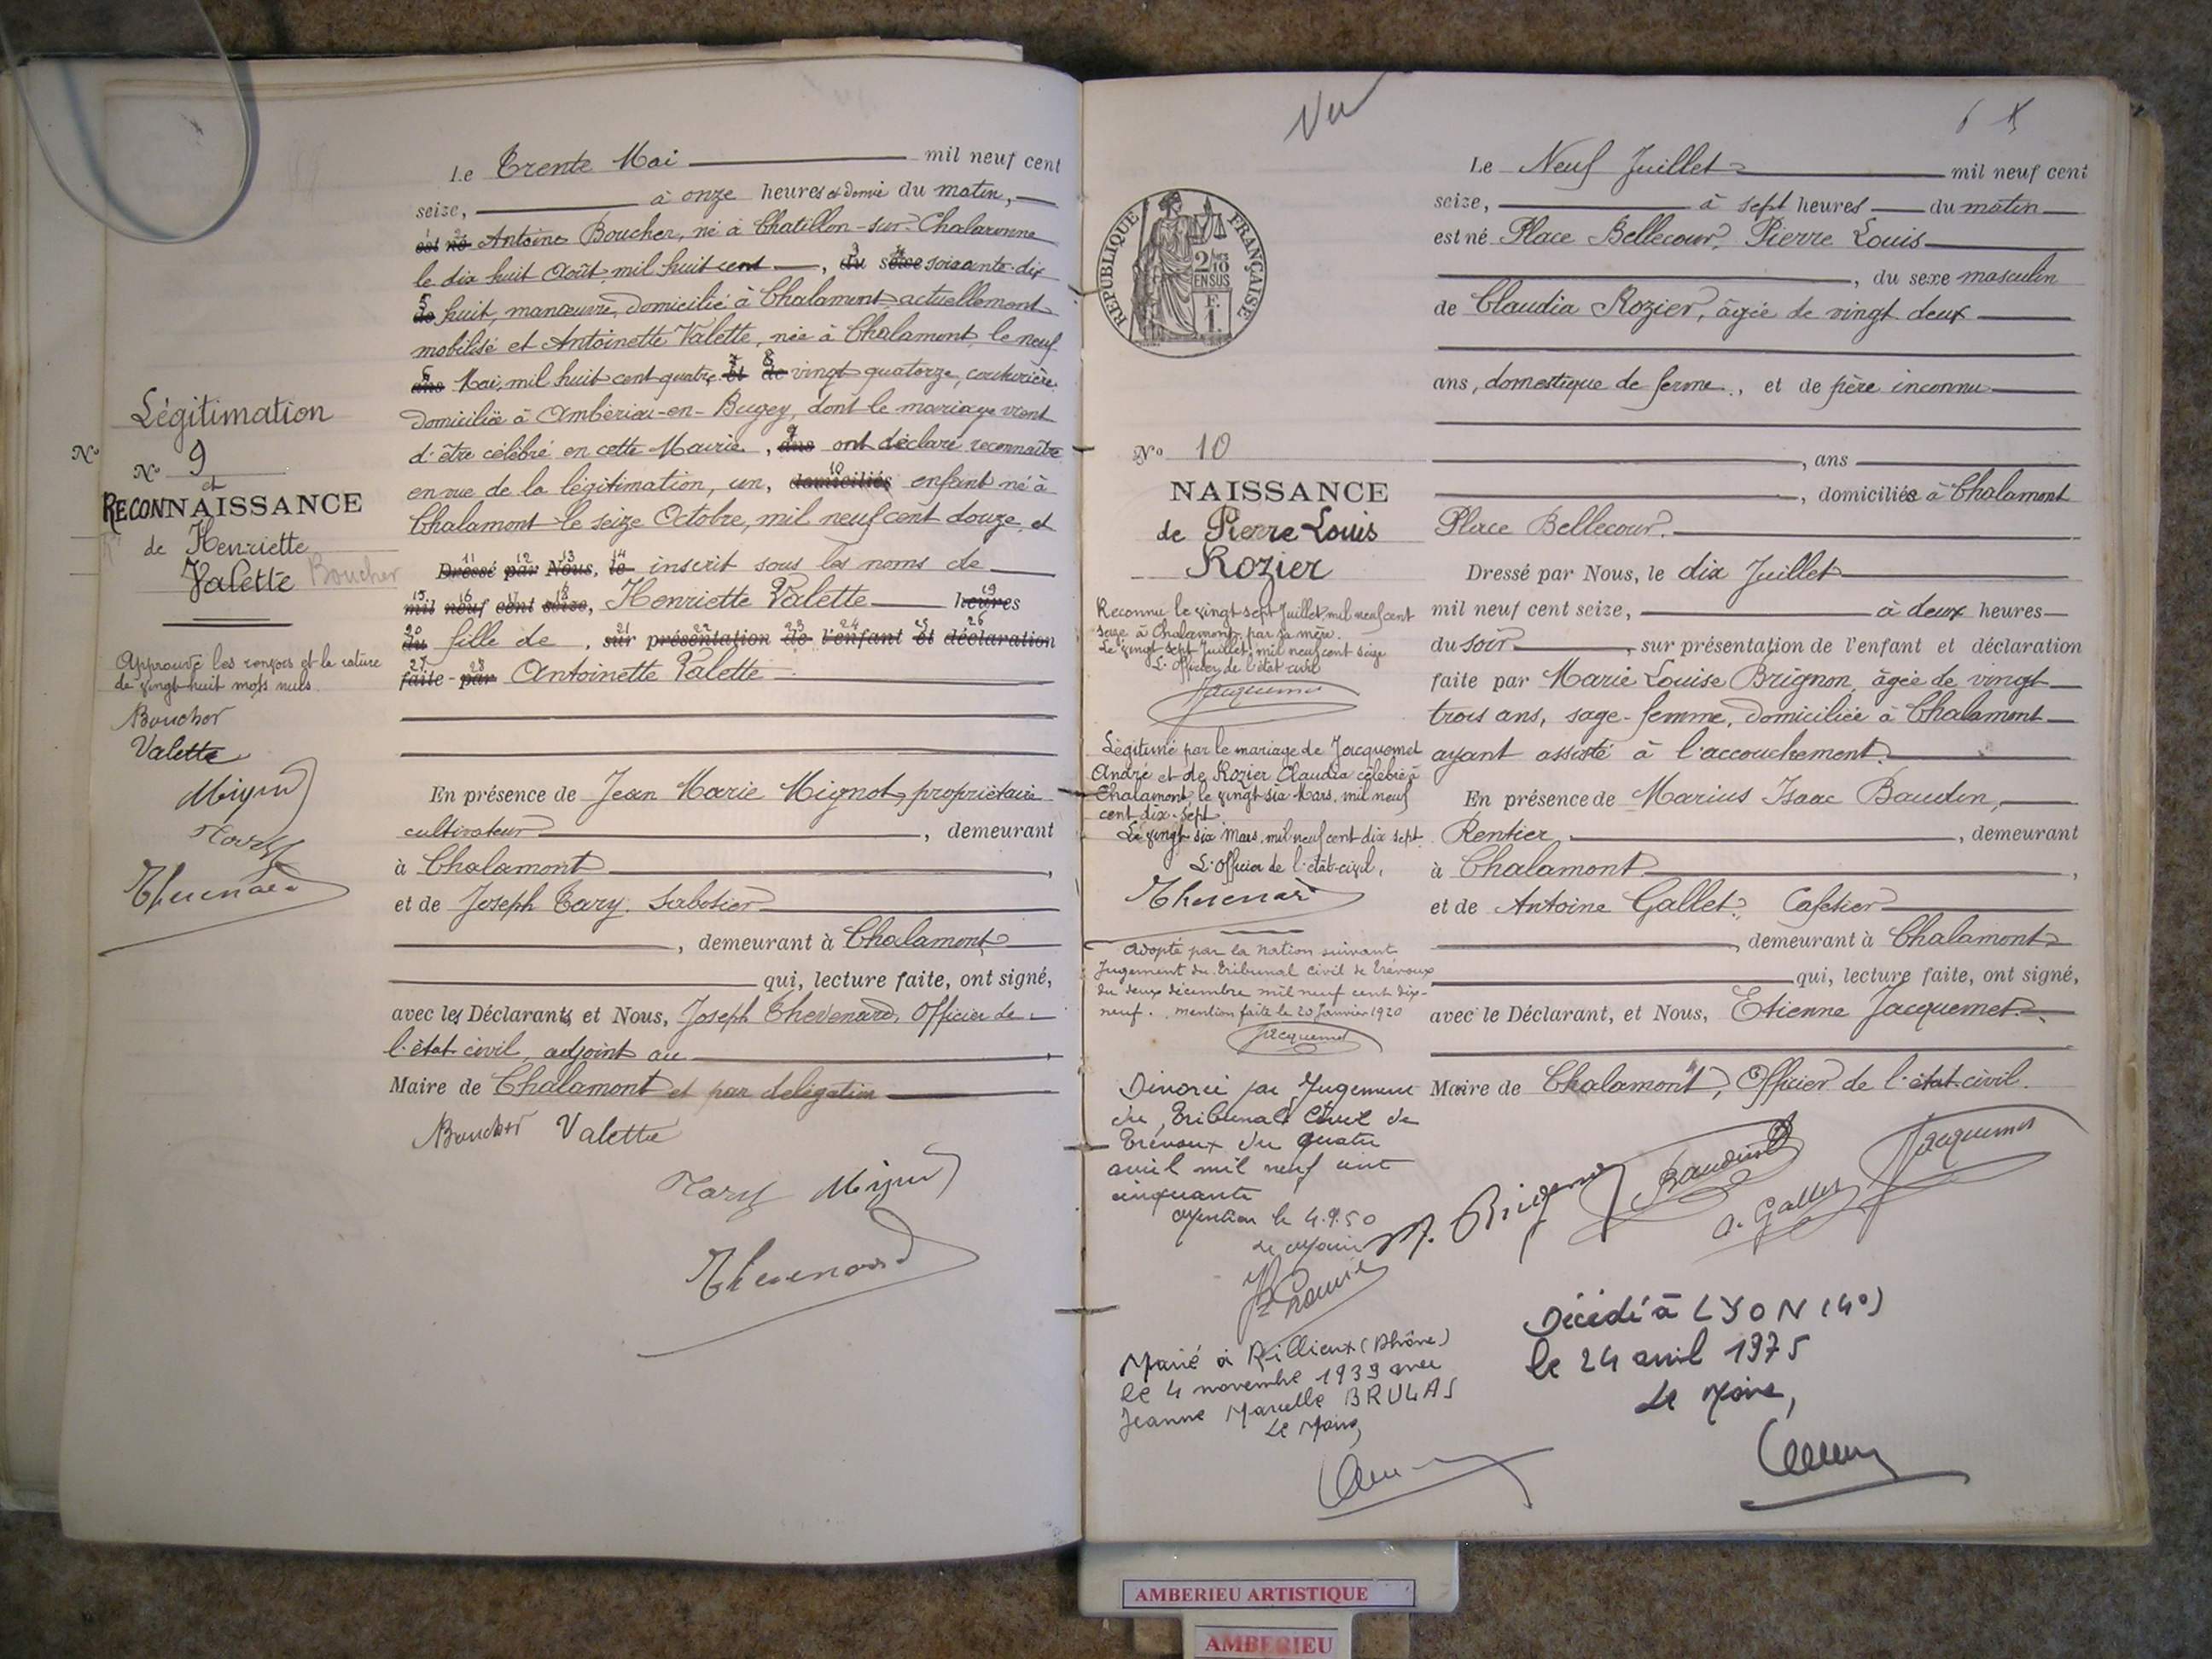 Légitimation
N° 9
et
RECONNAISSANCE
de Henriette
Valette Boucher
Approuvé les renvois et la rature
de vingt huit mots nuls
Boucher
Valette
Mignot
Tary
Thevenard
Le Trente Mai mil neuf cent
seize, à onze heures et demie du matin,
est né Antoine Boucher, né à Chatillon-sur-Chalaronne
le dix huit Août mil huit cent, du sexe soixante-dix
de huit, manœuvre, domicilié à Chalamont, actuellement
mobilisé et Antoinette Valette, née à Chalamont, le neuf
ans Mai, mil huit cent quatre et de vingt quatorze, couturière
domiciliée à Ambérieu-en-Bugey, dont le mariage vient
d'être célébré en cette Mairie, ans ont déclaré reconnaître
en vue de la légitimation, un, domiciliés enfant né à
Chalamont le seize Octobre, mil neuf cent douze, et
Dressé par Nous, le inscrit sous les noms de
mil neuf cent seize, Henriette Valette heures
du fille de, sur présentation de l'enfant et déclaration
faite par Antoinette Valette
En présence de Jean Marie Mignot, propriétaire
cultivateur, demeurant
à Chalamont,
et de Joseph Tary. Sabotier
, demeurant à Chalamont
qui, lecture faite, ont signé,
avec les Déclarants, et Nous, Joseph Thevenard, Officier de
l'état civil, adjoint au
Maire de Chalamont et par délégation
Boucher Valette
Tary Mignot
Thevenard
Vu
6
REPUBLIQUE FRANÇAISE
2/10 EN SUS
N° 10
NAISSANCE
de Pierre Louis
Rozier
Reconnu le vingt sept Juillet, mil neuf cent
seize à Chalamont, par sa mère.
Le vingt sept Juillet, mil neuf cent seize
L'Officier de l'état civil
Jacquemet
Légitimé par le mariage de Jacquemet
André et de Rozier Claudia célébré à
Chalamont, le vingt six Mars, mil neuf
cent dix-sept
Le vingt six Mars, mil neuf cent dix sept.
L'Officier de l'état-civil,
Thevenard
Adopté par la Nation suivant
Jugement du Tribunal Civil de Trévoux
du deux décembre mil neuf cent dix-
neuf. mention faite le 20 Janvier 1920
Jacquemet
Divorcé par Jugement
du Tribunal Civil de
Trévoux du quatre
avril mil neuf cent
cinquante
Mention le 4.9.50
Le Maire
Marié à Rillieux (Rhône)
le 4 novembre 1939 avec
Jeanne Marcelle BRULAS
Le Maire
Le Neuf Juillet mil neuf cent
seize, à sept heures du matin
est né Place Bellecour, Pierre Louis
, du sexe masculin
de Claudia Rozier, âgée de vingt deux
ans, domestique de ferme, et de père inconnu
, ans
, domiciliée à Chalamont
Place Bellecour.
Dressé par Nous, le dix Juillet
mil neuf cent seize, à deux heures
du soir, sur présentation de l'enfant et déclaration
faite par Marie Louise Brignon, âgée de vingt
trois ans, sage-femme, domiciliée à Chalamont
ayant assisté à l'accouchement.
En présence de Marius Isaac Baudin,
Rentier, demeurant
à Chalamont,
et de Antoine Gallet, Cafetier
, demeurant à Chalamont
qui, lecture faite, ont signé,
avec le Déclarant, et Nous, Etienne Jacquemet
Maire de Chalamont, Officier de l'état-civil.
M. Brignon Baudin A. Gallet Jacquemet
Décédé à LYON (4°)
le 24 avril 1975
Le Maire,
AMBERIEU ARTISTIQUE
AMBERIEU